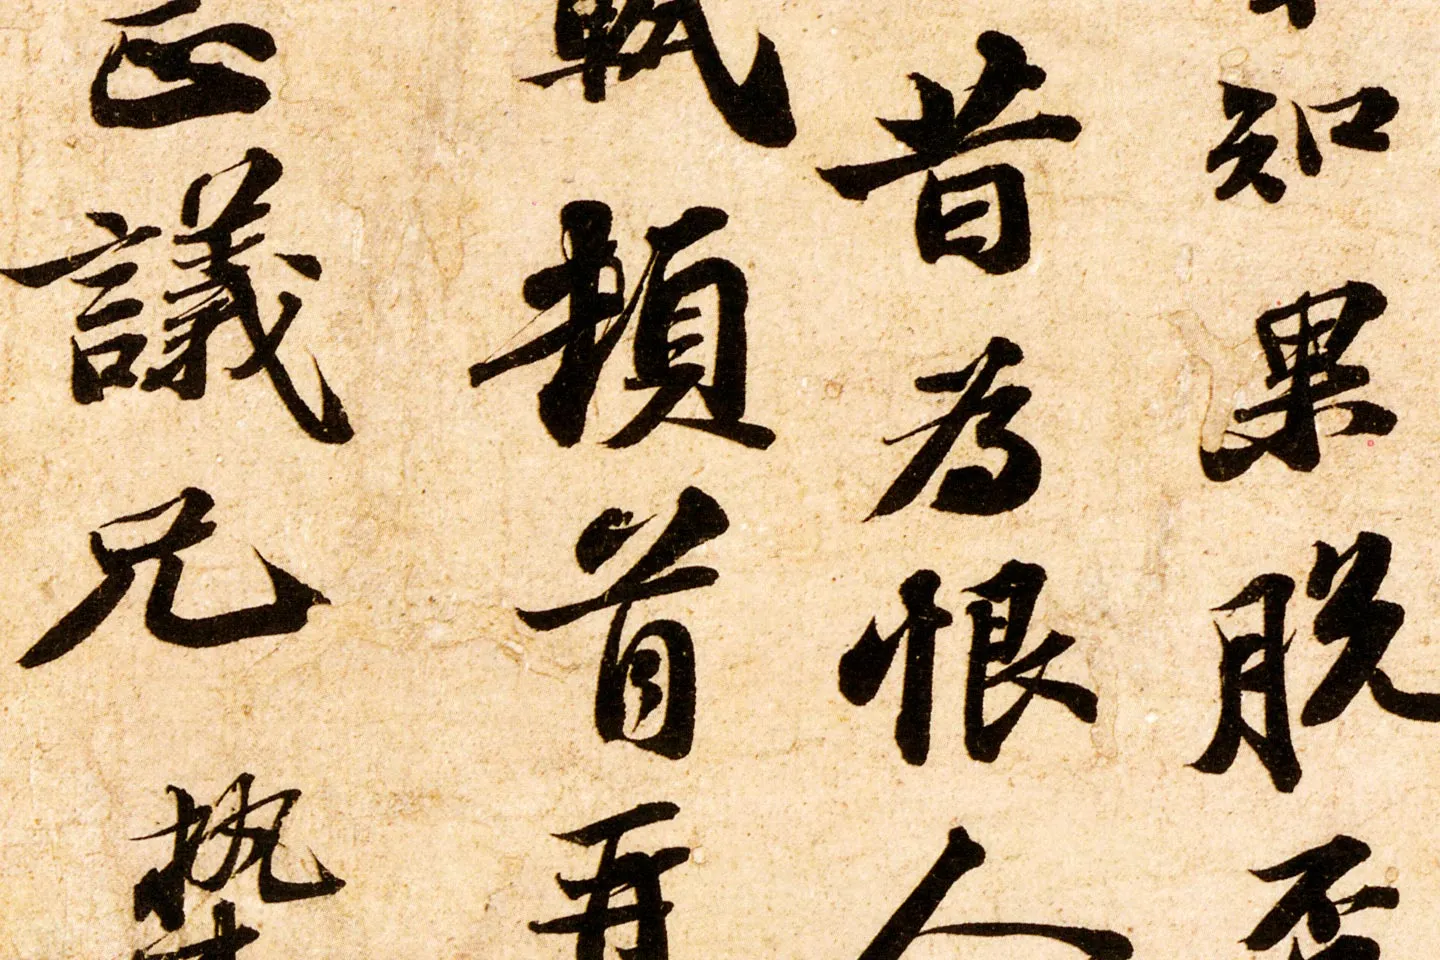 知果脫否
昔為恨人
軾頓首再
正議兄執